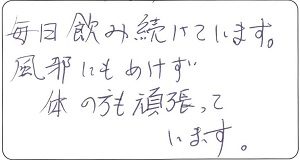 毎日飲み続けています。
風邪にもめけず
体の方も頑張って
います。